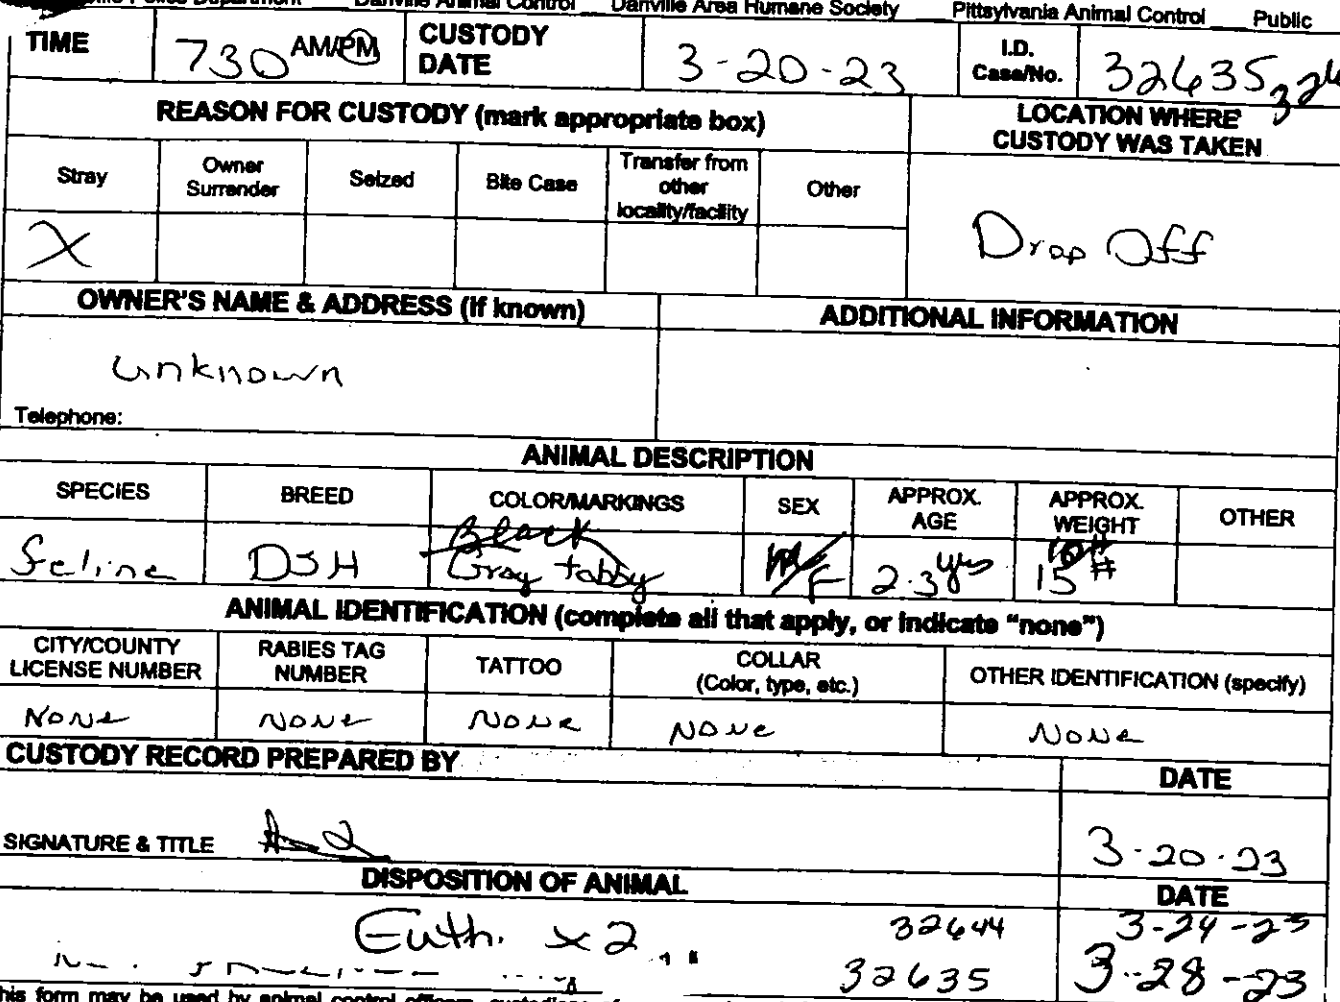 Police Department Danville Animal Control Danville Area Humane Society Pittsylvania Animal Control Public
TIME 730 AM/PM CUSTODY DATE 3-20-23 I.D. Case/No. 32635
REASON FOR CUSTODY (mark appropriate box) LOCATION WHERE CUSTODY WAS TAKEN
Stray Owner Surrender Seized Bite Case Transfer from other locality/facility Other
X Drop Off
OWNER'S NAME & ADDRESS (if known) ADDITIONAL INFORMATION
unknown
Telephone:
ANIMAL DESCRIPTION
SPECIES BREED COLOR/MARKINGS SEX APPROX. AGE APPROX. WEIGHT OTHER
Black 10#
feline DSH Gray tabby M/F 2-3 yrs 15#
ANIMAL IDENTIFICATION (complete all that apply, or indicate "none")
CITY/COUNTY LICENSE NUMBER RABIES TAG NUMBER TATTOO COLLAR (Color, type, etc.) OTHER IDENTIFICATION (specify)
None None None None None
CUSTODY RECORD PREPARED BY DATE
SIGNATURE & TITLE 3-20-23
DISPOSITION OF ANIMAL DATE
Euth. x2 32644 3-24-23
32635 3-28-23
his form may be used by animal control officers, custodians of